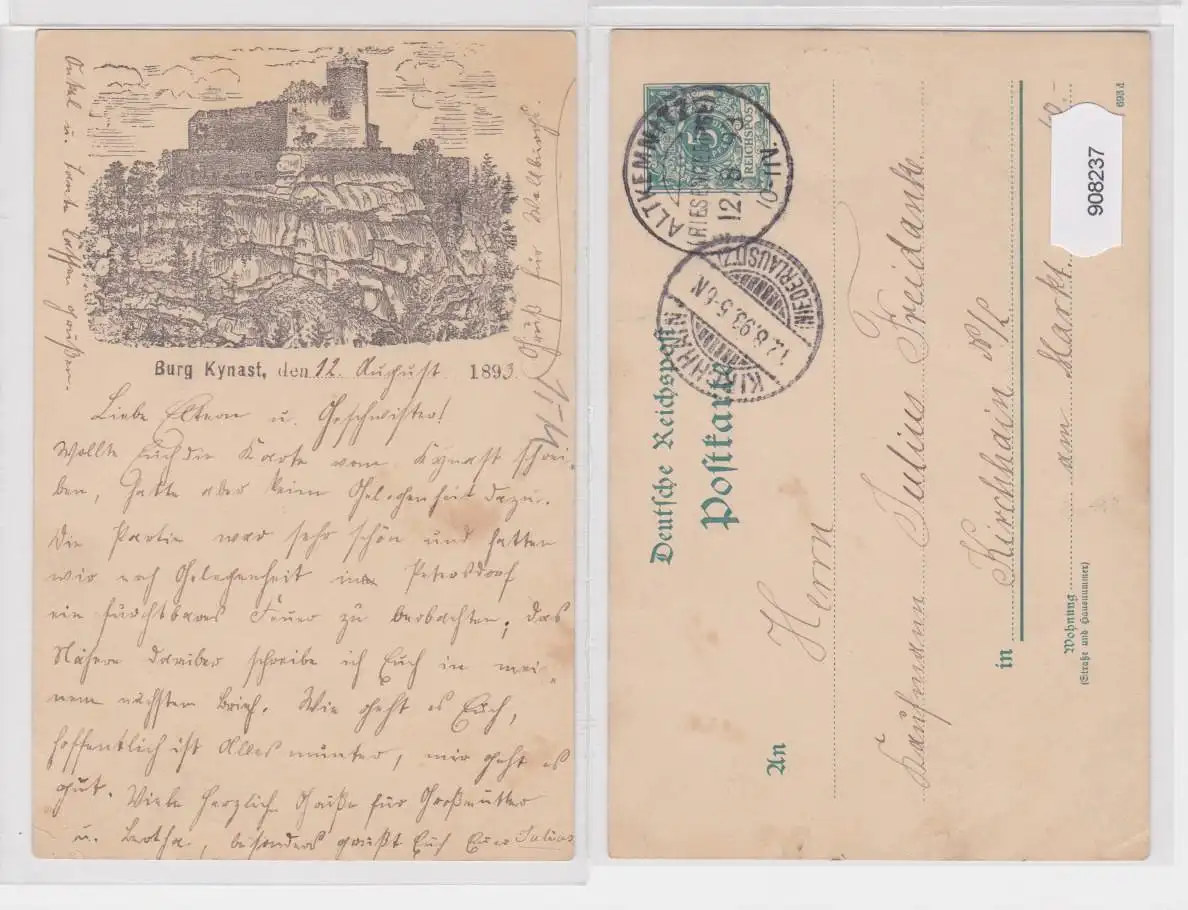 Burg Kynast, den 12. August 1893.
Liebe Eltern u. Geschwister!
Wollte Euch die Karte vom Kynast schrei-
ben, hatte aber keine Gelegenheit dazu.
Die Partie war sehr schön und hatten
wir noch Gelegenheit in Petersdorf
ein furchtbares Feuer zu beobachten, das
Nähere darüber schreibe ich Euch in mei-
nem nächsten Brief. Wie geht es Euch,
hoffentlich ist Alles munter, mir geht es
gut. Viele herzliche Grüße für Großmutter
u. Bertha, besonders grüßt Euch Euer Julius
Onkel u. Tante lassen grüßen.
Gruß für Wallburgs.
Deutsche Reichspost
Postkarte
5
REICHSPOST
ALTKEMNITZ
(RIESENGEBIRGE)
12/8 93
10-11N.
KIRCHHAIN
(NIEDERLAUSITZ)
12.8.93.5-6N
An Herrn
Kaufmann Julius Freidank
in Kirchhain N/L
Wohnung am Markt
(Straße und Hausnummer)
693d
908237